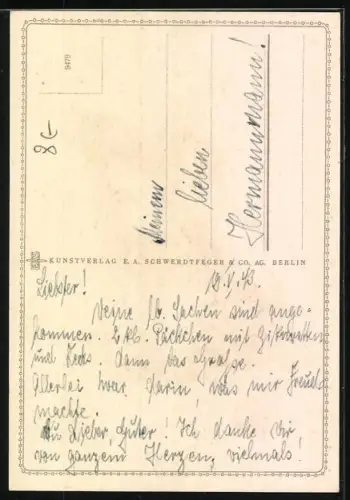 9479
8,-
Meinem
lieben
Hermannmann!
KUNSTVERLAG E. A. SCHWERDTFEGER & CO. AG. BERLIN
Liebster!
Deine lb. Sachen sind ange-
kommen. 2 kl. Päckchen mit
und Keks. Dann das Große.
Allerlei war darin was mir Freude
machte.
Du Lieber, Guter! Ich danke Dir
von ganzem Herzen, vielmals!